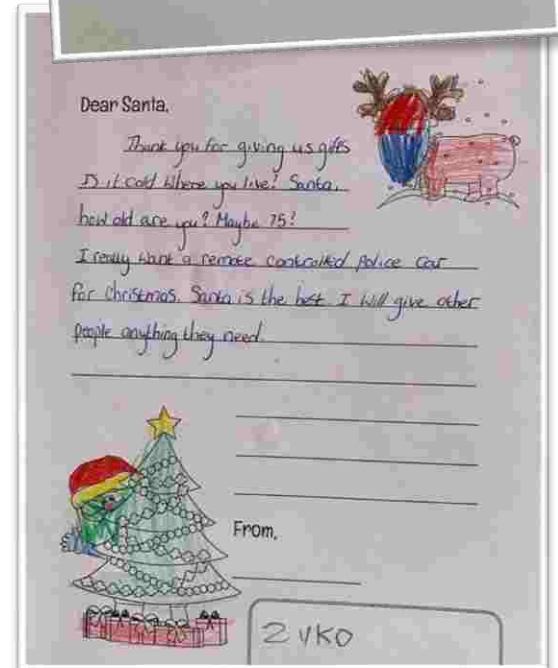 Dear Santa,
Thank you for giving us gifts
Is it cold where you live? Santa,
how old are you? Maybe 75?
I really want a remote controlled Police Car
for Christmas. Santa is the best. I will give other
people anything they need.
From,
ZUKO